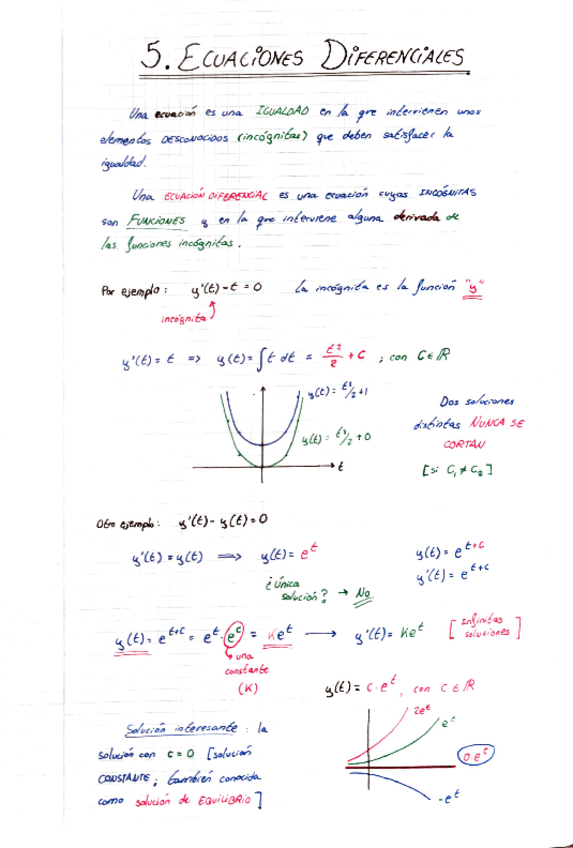 5. ECUACIONES DIFERENCIALES
Una ecuación es una IGUALDAD en la que intervienen unos
elementos DESCONOCIDOS (incógnitas) que deben satisfacer la
igualdad.
Una ECUACIÓN DIFERENCIAL es una ecuación cuyas INCÓGNITAS
son FUNCIONES y en la que interviene alguna derivada de
las funciones incógnitas.
Por ejemplo: y'(t) - t = 0 La incógnita es la función "y"
incógnita
y'(t) = t => y(t) = ∫t dt = t²/2 + C ; con C ∈ ℝ
y(t) = t²/2 + 1
y(t) = t²/2 + 0
t
Dos soluciones
distintas NUNCA SE
CORTAN
[si C₁ ≠ C₂]
Otro ejemplo: y'(t) - y(t) = 0
y'(t) = y(t) => y(t) = e^t
y(t) = e^{t+c}
y'(t) = e^{t+c}
¿Única
solución? → No
y(t) = e^{t+c} = e^t · e^c = Ke^t → y'(t) = Ke^t [Infinitas
soluciones]
una
constante
(K)
y(t) = C·e^t, con C ∈ ℝ
2e^t
e^t
0·e^t
-e^t
Solución interesante: la
solución con c = 0 [solución
CONSTANTE; también conocida
como solución de EQUILIBRIO]